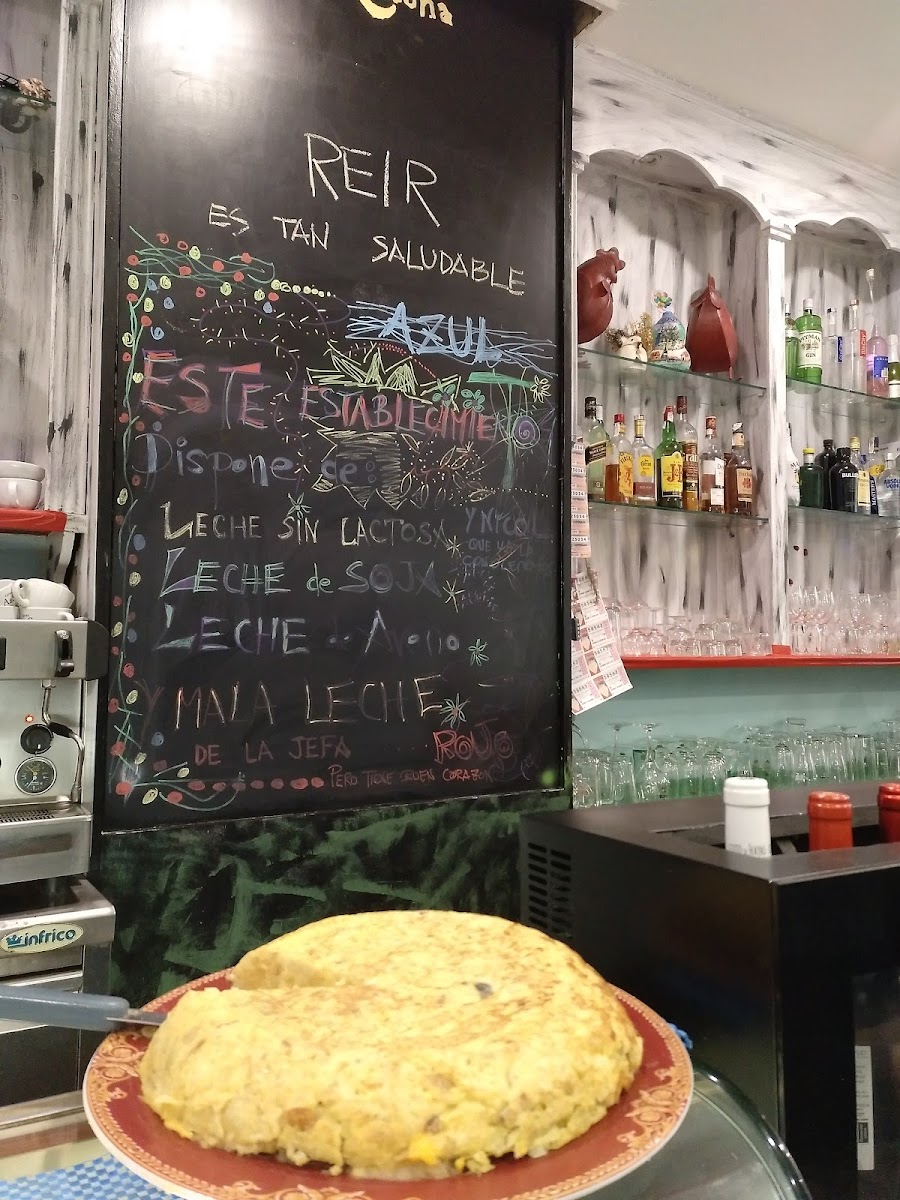 REIR
ES TAN SALUDABLE
AZUL
ESTE ESTABLECIMIENTO
Dispone de:
LECHE SIN LACTOSA
LECHE de SOJA
LECHE de Avena
Y MALA LECHE
DE LA JEFA
ROJO
PERO TIENE BUEN CORAZON
infrico
GIN
J&B